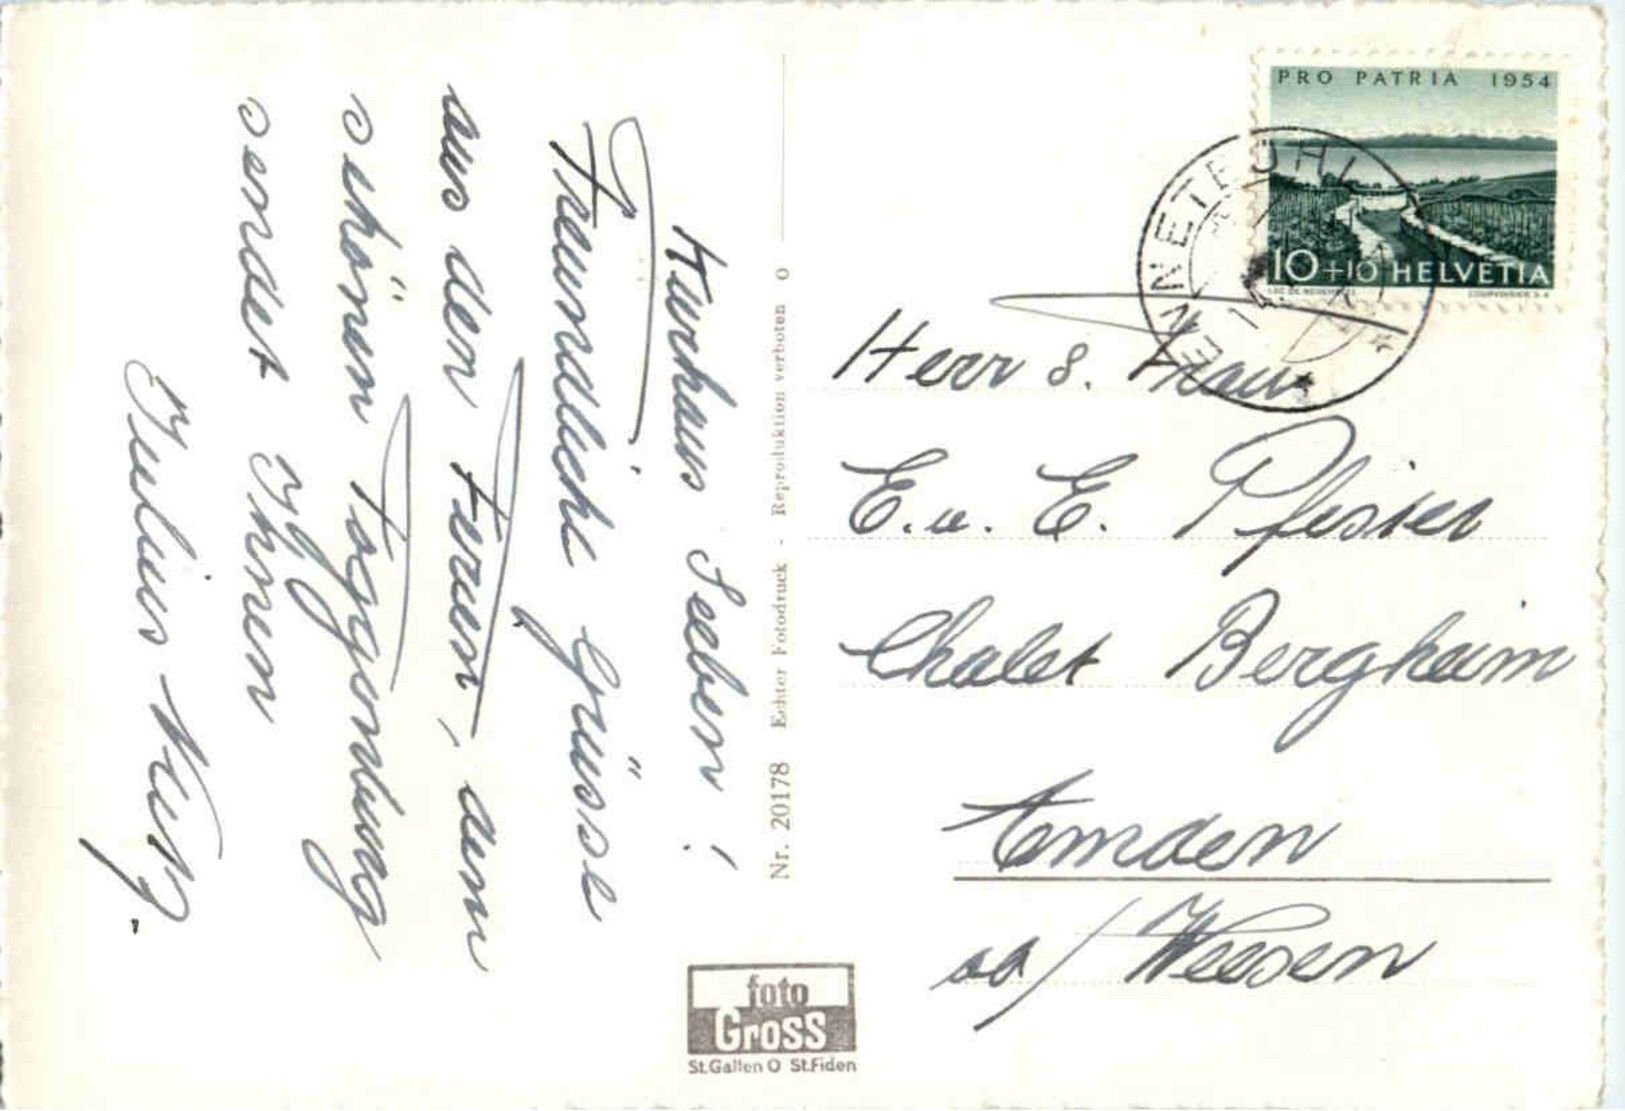 Kurhaus Seeben!
Freundliche Grüsse
aus den Ferien, dem
schönen Toggenburg
sendet Ihnen
Julius
Nr. 20178 Echter Fotodruck - Reproduktion verboten o
PRO PATRIA 1954
10+10 HELVETIA
ENNETBÜHL
Herr & Frau
E. u. E. Pfister
Chalet Bergheim
Amden
ob/Weesen
foto
Gross
St.Gallen O St.Fiden